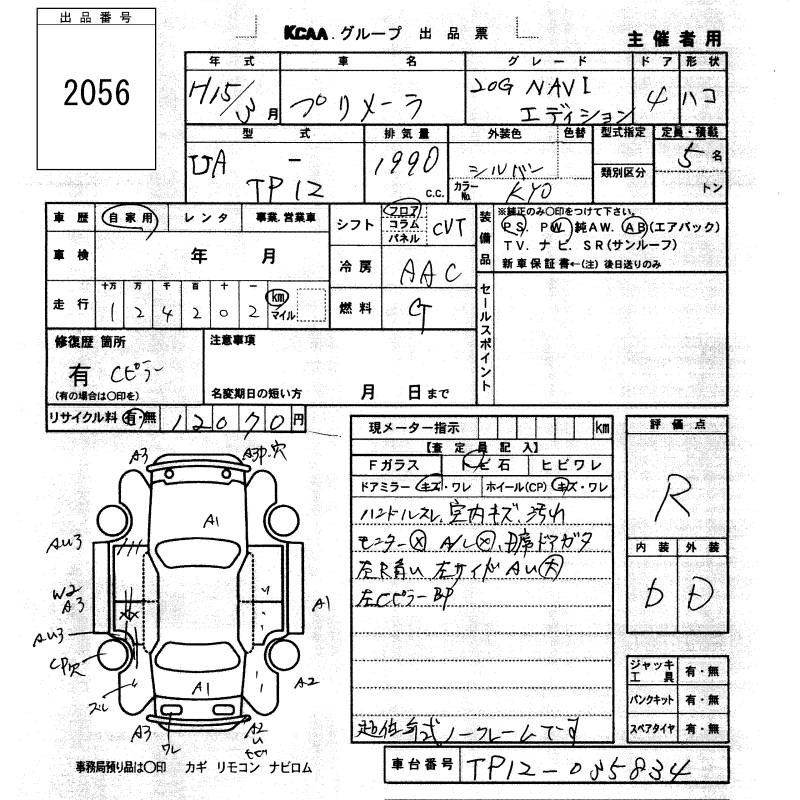 出品番号
2056
KCAA.グループ 出品票
主催者用
年式 車名 グレード ドア 形状
H15/3月 プリメーラ 20G NAVI エディション 4 ハコ
型式 排気量 外装色 色替 型式指定 定員・積載
UA-TP12 1990 c.c. シルバー 類別区分 5名
カラーNo. KY0 トン
車歴 自家用 レンタ 事業.営業車
シフト フロア コラム パネル CVT
装備品 ※純正のみ○印をつけて下さい。
PS. PW. 純AW. AB(エアバック)
TV. ナビ. SR(サンルーフ)
新車保証書←(注) 後日送りのみ
車検 年 月
冷房 AAC
走行 十万 万 千 百 十 一
124202 km マイル
燃料 G
セールスポイント
修復歴 箇所
有 Cピラー
(有の場合は○印を)
注意事項
名変期日の短い方 月 日まで
リサイクル料 有・無 12070円
現メーター指示 km
【査定員記入】
Fガラス トビ石 ヒビワレ
ドアミラー キズ・ワレ ホイール(CP) キズ・ワレ
ハンドルスレ、室内キズ、汚れ
モニター× A/L×
左サイドAU大
左Cピラー BP
ノークレームです
評価点
R
内装 外装
D D
ジャッキ工具 有・無
パンクキット 有・無
スペアタイヤ 有・無
A3 A3P.穴
A1
AU3
W2
A3
A1
AU3
CP欠
スレ
A1
A2
A3
ワレ
A2
事務局預り品は○印 カギ リモコン ナビロム
車台番号 TP12-085834